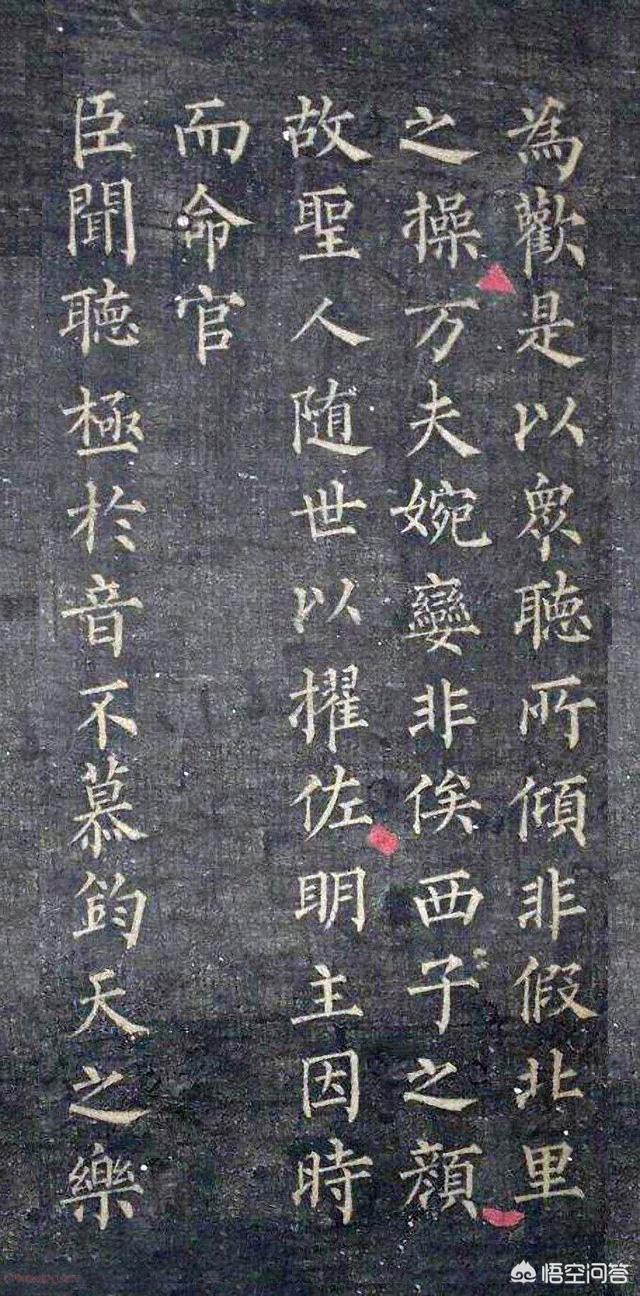 為歡是以衆聽所傾非假北里
之操万夫婉孌非俟西子之顏
故聖人随世以擢佐明主因時
而命官
臣聞聽極於音不慕鈞天之樂
悟空问答